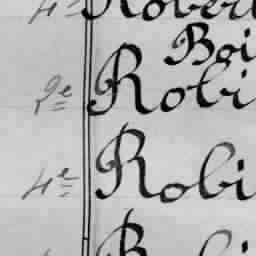 4e Robert
Boi
2e Robi
4e Robi